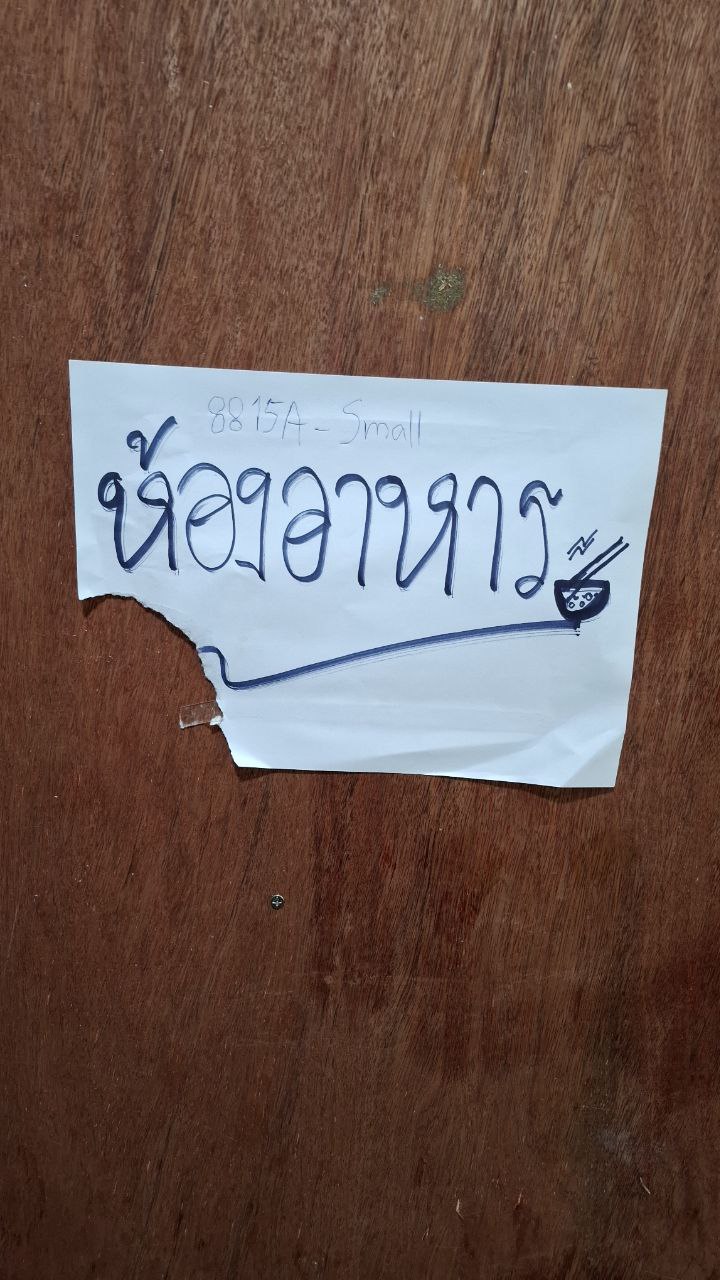 8815A - Small
ห้องอาหาร